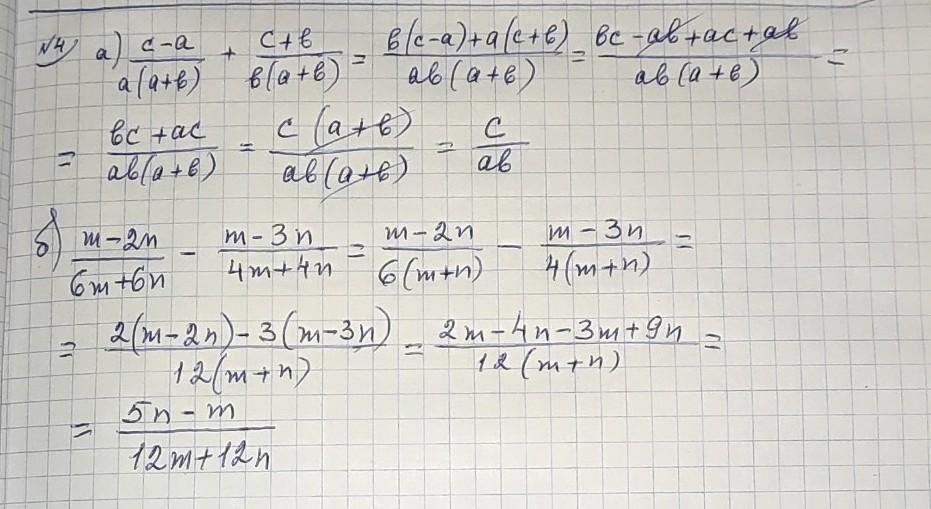 №4 а) (c-a)/(a(a+b)) + (c+b)/(b(a+b)) = (b(c-a)+a(c+b))/(ab(a+b)) = (bc-ab+ac+ab)/(ab(a+b)) =
= (bc+ac)/(ab(a+b)) = (c(a+b))/(ab(a+b)) = c/(ab)
б) (m-2n)/(6m+6n) - (m-3n)/(4m+4n) = (m-2n)/(6(m+n)) - (m-3n)/(4(m+n)) =
= (2(m-2n)-3(m-3n))/(12(m+n)) = (2m-4n-3m+9n)/(12(m+n)) =
= (5n-m)/(12m+12n)